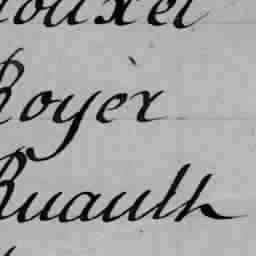 Rouxel
Royèr
Ruault